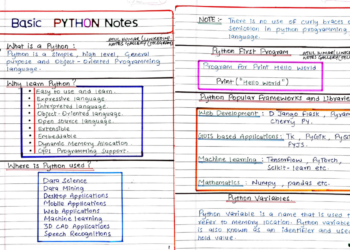 Basic PYTHON Notes
What is a Python :
Python is a Simple, high level, General
purpose and Object - Oriented Programming
language.
Why learn Python?
Easy to use and Learn
Expressive Language
Interpreted Language
Object-Oriented Language
Open Source Language
Extensible
Embeddable
Dynamic Memory Allocation
GUI Programming Support
Where is Python used?
Data Science
Data Mining
Desktop Applications
Mobile Applications
Web Applications
Machine Learning
3D CAD Applications
Speech Recognitions
NOTE :- There is no use of curly braces
Semicolon in python programming
language.
Python First Program
Program for Print Hello World
Print ("Hello World")
Python Popular Frameworks and Libraries
Web Development : Django Flask, Pyram
Cherry Py.
GUIs based Applications : Tk, PyGTK, PyQt
PyJS.
Machine Learning : Tensorflow, PyTorch,
Mathematics : Numpy, pandas etc.
Python Variables
Python Variable is a name that is used t
refer to memory location. Python Variable
is also known as an identifier and used
hold value.